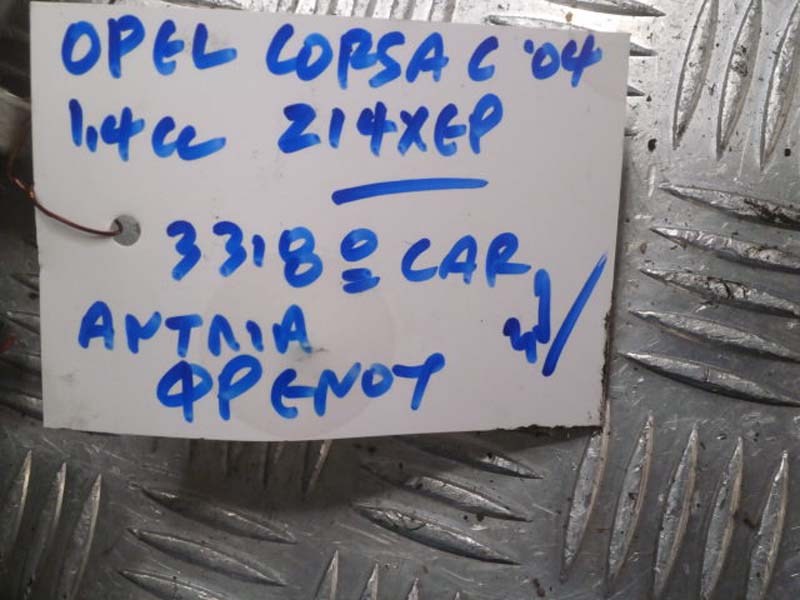 OPEL CORSA C '04
1.4cc Z14XEP
3318º CAR
ΑΝΤΛΙΑ
ΦΡΕΝΟΥ